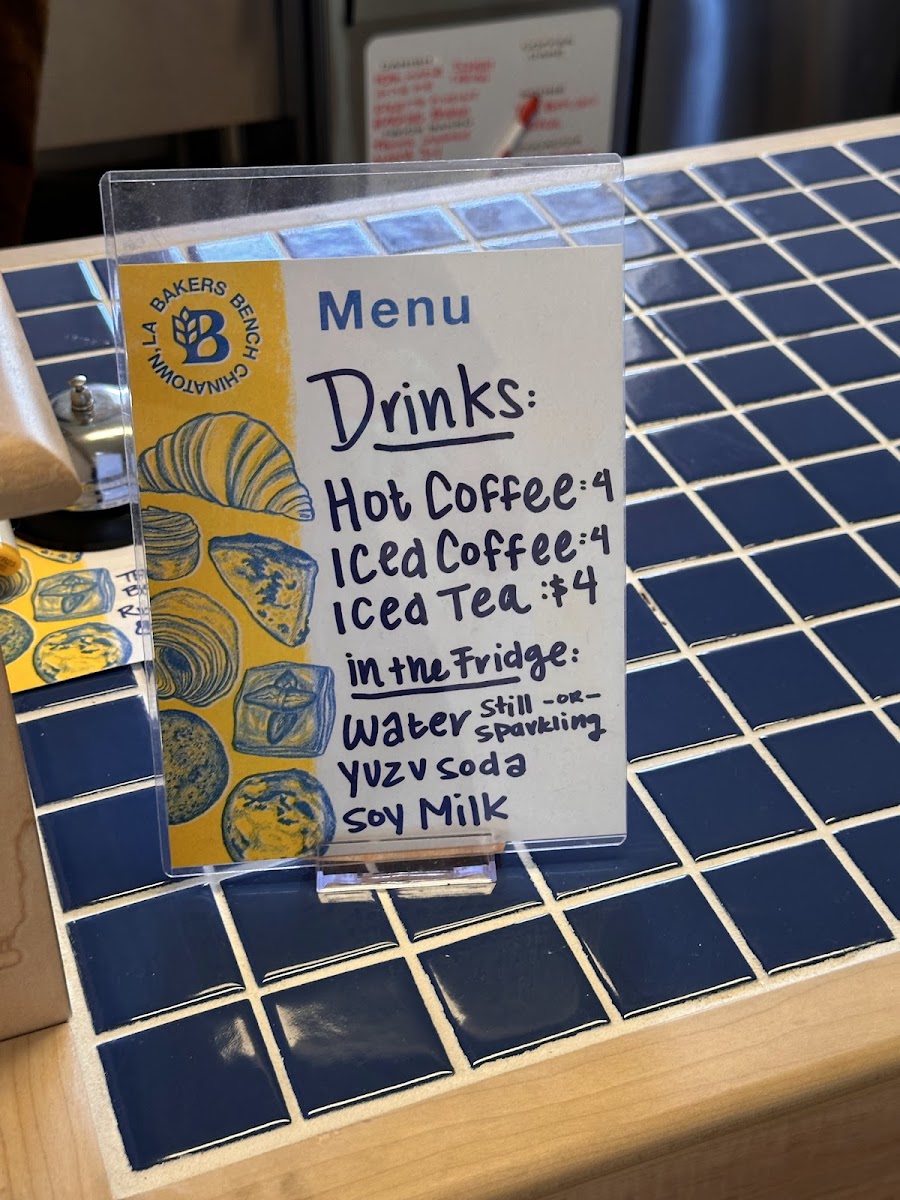 BAKERS BENCH CHINATOWN LA
B
Menu
Drinks:
Hot Coffee: 4
Iced Coffee: 4
Iced Tea: $4
in the Fridge:
Water Still -OR- Sparkling
Yuzu soda
Soy Milk